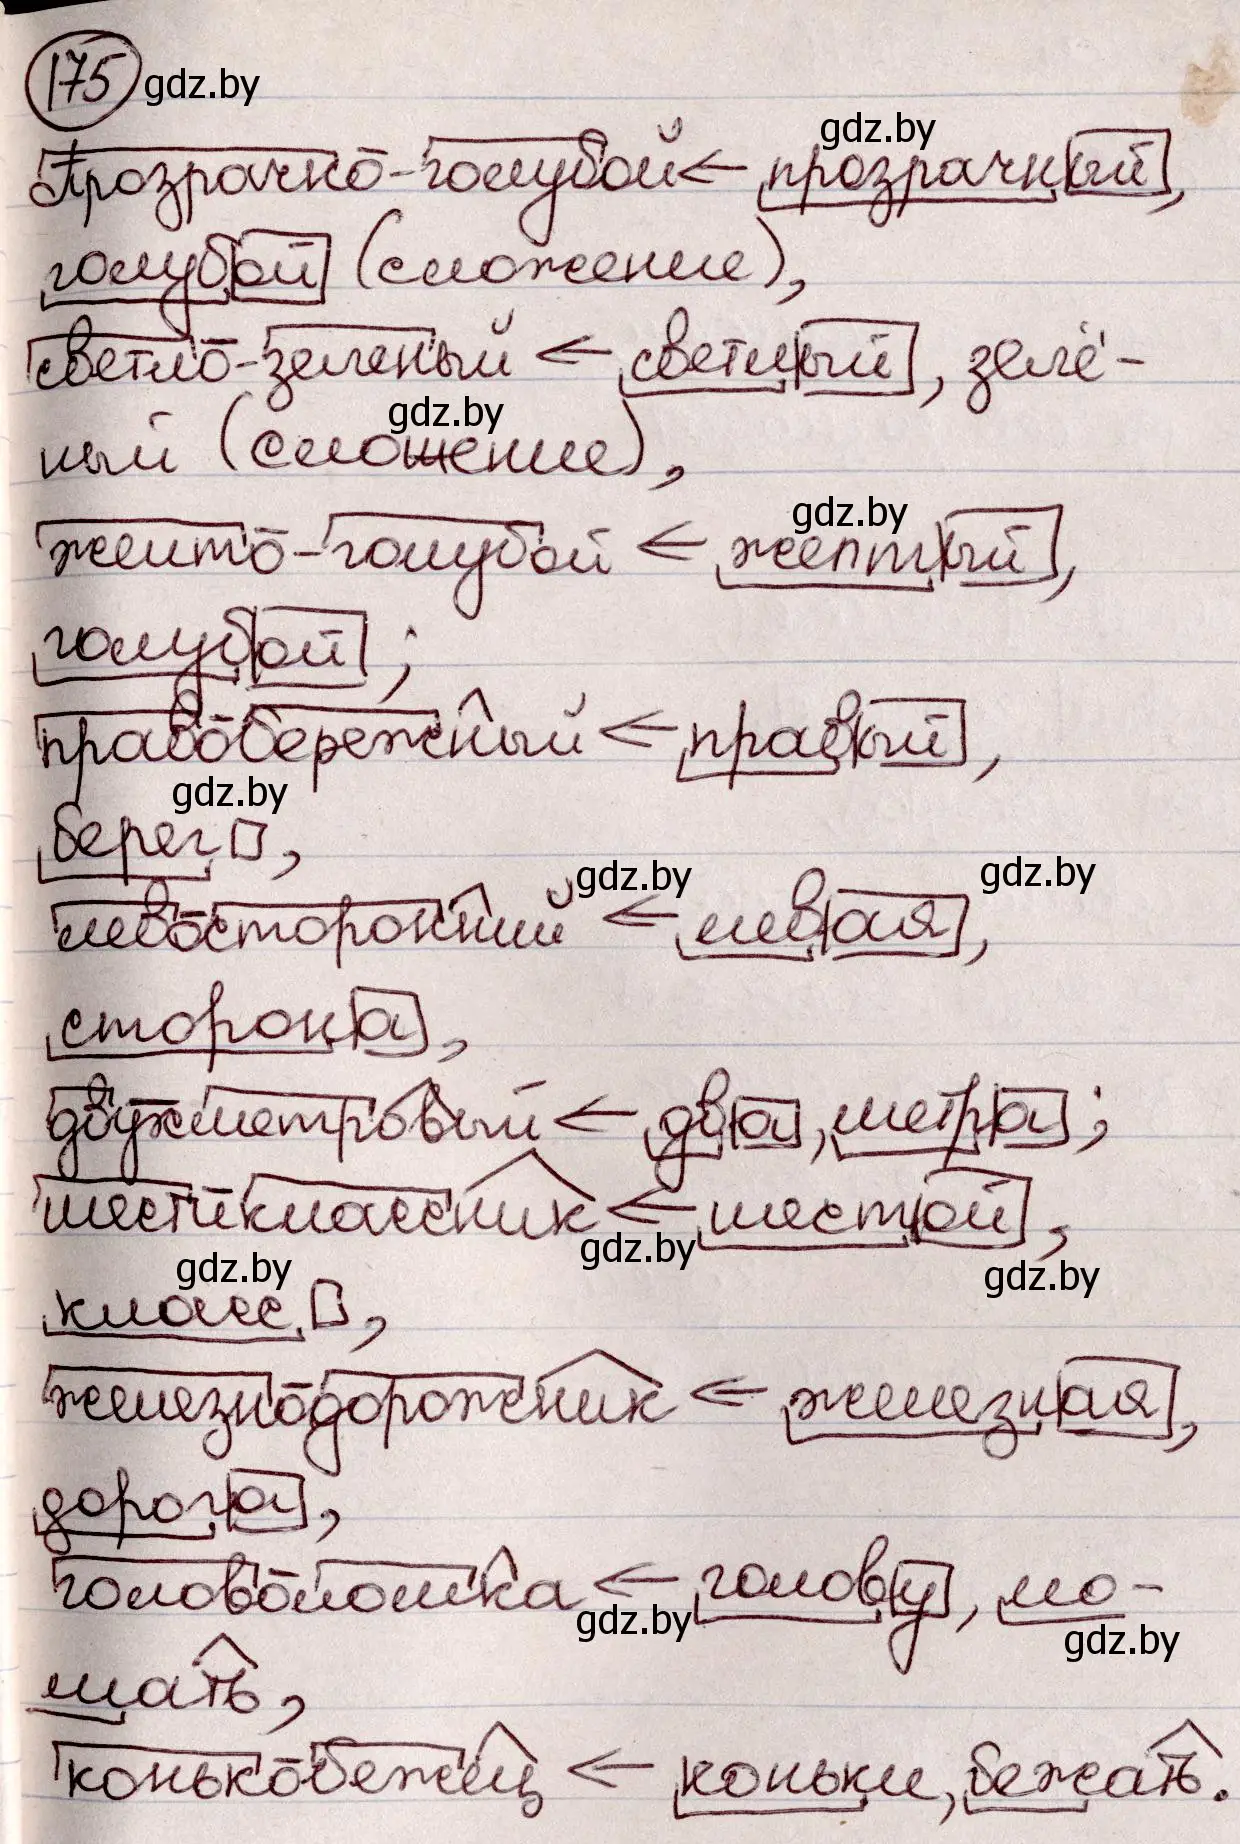 175 gdz.by
gdz.by
Прозрачно-голубой ← прозрачный,
голубой (сложение),
светло-зеленый ← светлый, зелё-
gdz.by
ный (сложение),
gdz.by
желто-голубой ← желтый,
голубой;
правобережный ← правый,
gdz.by
берег,
gdz.by gdz.by
левосторонний ← левая,
сторона,
двухметровый ← два, метра;
шестиклассник ← шестой,
gdz.by
gdz.by gdz.by
класс,
железнодорожник ← железная,
дорога,
головоломка ← голову, ло-
gdz.by
gdz.by
мать,
конькобежец ← коньки, бежать.